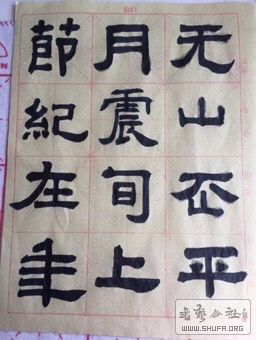 无山丕平
月震旬上
節紀在年
書藝公社
WWW.SHUFA.ORG